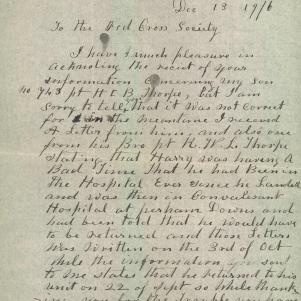 Dec 13 1916
To the Red Cross Society
I have much pleasure in
acknolling the receit of your
information concerning my son
No 743 pt H E B Thorpe, but I am
Sorry to tell that it was not correct
for in the meantime I received
A Letter from him, and also one
from his Bro pt R. W. L. Thorpe
Stating that Harry was having A
Bad Time That he had Been in
the Hospital Ever Since he Landed
and was then in Convalesant
Hospital at perham Downs and
had been told that he would have
to be returned and those Letters
Was Written on the 3rd of Oct
while the information you sent
to me states that he returned to his
unit on 22 of Sept so While thanking
you for the trouble you have